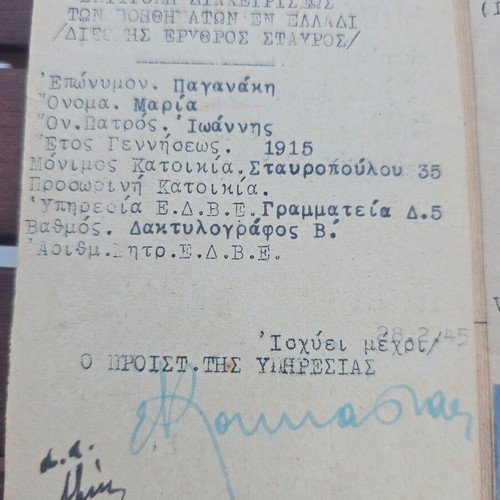 ΕΠΙΤΡΟΠΗ ΔΙΑΧΕΙΡΙΣΕΩΣ
ΤΩΝ ΒΟΗΘΗΜΑΤΩΝ ΕΝ ΕΛΛΑΔΙ
/ΔΙΕΘΝΗΣ ΕΡΥΘΡΟΣ ΣΤΑΥΡΟΣ/
Ἐπώνυμον. Παγανάκη
Ὄνομα. Μαρία
Ὄν.Πατρός. Ἰωάννης
Ἔτος Γεννήσεως. 1915
Μόνιμος Κατοικία.Σταυροπούλου 35
Προσωρινή Κατοικία.
Ὑπηρεσία Ε.Δ.Β.Ε.Γραμματεία Δ.5
Βαθμός. Δακτυλογράφος Β.
Ἀριθμ.Μητρ.Ε.Δ.Β.Ε.
Ἰσχύει μέχρι/
28.2.45
Ο ΠΡΟΙΣΤ.ΤΗΣ ΥΠΗΡΕΣΙΑΣ